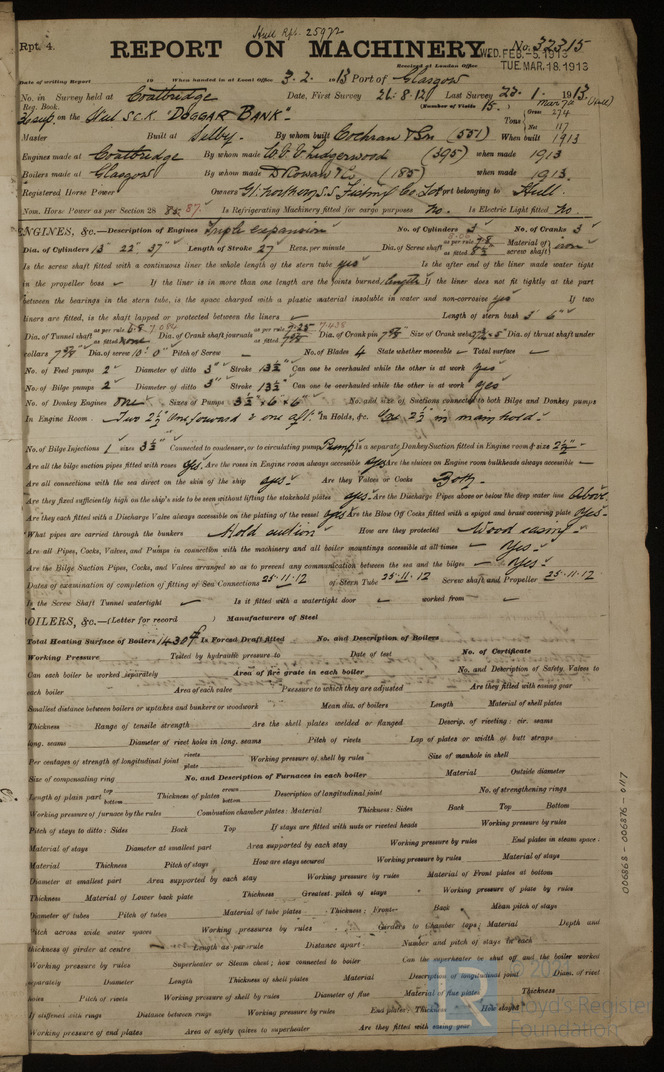 Hull Rpt. 25972
Rpt. 4.
REPORT ON MACHINERY.
No. 32315
WED. FEB. -5. 1913
TUE. MAR. 18. 1913
Received at London Office
Date of writing Report 19 When handed in at Local Office 3. 2. 1913 Port of Glasgow
No. in Survey held at Coatbridge Date, First Survey 26. 8. 12 Last Survey 23. 1. 1913
Reg. Book. (Number of Visits 15.)
on the Steel S.C.K. "DOGGAR BANK".
Tons Gross 274 Net 117
Master Built at Selby. By whom built Cochran & Sons (551) When built 1913
Engines made at Coatbridge By whom made W. V. V. Lidgerwood (395) when made 1913
Boilers made at Glasgow By whom made D. Rowan & Co. (185) when made 1913.
Registered Horse Power Owners Gt. Northern S.S. Fishing Co. Ltd Port belonging to Hull.
Nom. Horse Power as per Section 28 85. 87. Is Refrigerating Machinery fitted for cargo purposes No. Is Electric Light fitted No.
ENGINES, &c.—Description of Engines Triple expansion No. of Cylinders 3 No. of Cranks 3
Dia. of Cylinders 13" 22" 37" Length of Stroke 27" Revs. per minute Dia. of Screw shaft as per rule as fitted Material of screw shaft iron
Is the screw shaft fitted with a continuous liner the whole length of the stern tube yes Is the after end of the liner made water tight
in the propeller boss If the liner is in more than one length are the joints burned length If the liner does not fit tightly at the part
between the bearings in the stern tube, is the space charged with a plastic material insoluble in water and non-corrosive yes If two
liners are fitted, is the shaft lapped or protected between the liners Length of stern bush 3' 6"
Dia. of Tunnel shaft as per rule 6.8 7.084 as fitted none Dia. of Crank shaft journals as per rule 7.25 7.438 as fitted Dia. of Crank pin Size of Crank webs Dia. of thrust shaft under
collars Dia. of screw 10' 0" Pitch of Screw No. of Blades 4 State whether moveable Total surface
No. of Feed pumps 2 Diameter of ditto 3" Stroke 13½" Can one be overhauled while the other is at work yes
No. of Bilge pumps 2 Diameter of ditto 3" Stroke 13½" Can one be overhauled while the other is at work yes
No. of Donkey Engines one Sizes of Pumps 3½ × 6 × 6" No. and size of Suctions connected to both Bilge and Donkey pumps
In Engine Room Two 2½" One forward & one aft. In Holds, &c. One 2½" in main hold.
No. of Bilge Injections 1 sizes 3½" Connected to condenser, or to circulating pump Pump Is a separate Donkey Suction fitted in Engine room & size 2½"
Are all the bilge suction pipes fitted with roses yes. Are the roses in Engine room always accessible yes Are the sluices on Engine room bulkheads always accessible
Are all connections with the sea direct on the skin of the ship yes. Are they Valves or Cocks Both.
Are they fixed sufficiently high on the ship's side to be seen without lifting the stokehold plates yes. Are the Discharge Pipes above or below the deep water line Above
Are they each fitted with a Discharge Valve always accessible on the plating of the vessel yes Are the Blow Off Cocks fitted with a spigot and brass covering plate yes.
What pipes are carried through the bunkers Hold suction How are they protected Wood casing
Are all Pipes, Cocks, Valves, and Pumps in connection with the machinery and all boiler mountings accessible at all times yes.
Are the Bilge Suction Pipes, Cocks, and Valves arranged so as to prevent any communication between the sea and the bilges yes.
Dates of examination of completion of fitting of Sea Connections 25. 11. 12 of Stern Tube 25. 11. 12 Screw shaft and Propeller 25. 11. 12
Is the Screw Shaft Tunnel watertight Is it fitted with a watertight door worked from
OILERS, &c.—(Letter for record ) Manufacturers of Steel
Total Heating Surface of Boilers 1430 Is Forced Draft fitted No. and Description of Boilers
Working Pressure Tested by hydraulic pressure to Date of test No. of Certificate
Can each boiler be worked separately Area of fire grate in each boiler No. and Description of Safety Valves to
each boiler Area of each valve Pressure to which they are adjusted Are they fitted with easing gear
Smallest distance between boilers or uptakes and bunkers or woodwork Mean dia. of boilers Length Material of shell plates
Thickness Range of tensile strength Are the shell plates welded or flanged Descrip. of riveting: cir. seams
long. seams Diameter of rivet holes in long. seams Pitch of rivets Lap of plates or width of butt straps
Per centages of strength of longitudinal joint rivets plate Working pressure of shell by rules Size of manhole in shell
Size of compensating ring No. and Description of Furnaces in each boiler Material Outside diameter
Length of plain part top bottom Thickness of plates crown bottom Description of longitudinal joint No. of strengthening rings
Working pressure of furnace by the rules Combustion chamber plates: Material Thickness: Sides Back Top Bottom
Pitch of stays to ditto: Sides Back Top If stays are fitted with nuts or riveted heads Working pressure by rules
Material of stays Diameter at smallest part Area supported by each stay Working pressure by rules End plates in steam space:
Material Thickness Pitch of stays How are stays secured Working pressure by rules Material of stays
Diameter at smallest part Area supported by each stay Working pressure by rules Material of Front plates at bottom
Thickness Material of Lower back plate Thickness Greatest pitch of stays Working pressure of plate by rules
Diameter of tubes Pitch of tubes Material of tube plates Thickness: Front Back Mean pitch of stays
Pitch across wide water spaces Working pressures by rules Girders to Chamber tops: Material Depth and
thickness of girder at centre Length as per rule Distance apart Number and pitch of stays in each
Working pressure by rules Superheater or Steam chest; how connected to boiler Can the superheater be shut off and the boiler worked
separately Diameter Length Thickness of shell plates Material Description of longitudinal joint Diam. of rivet
holes Pitch of rivets Working pressure of shell by rules Diameter of flue Material of flue plates Thickness
If stiffened with rings Distance between rings Working pressure by rules End plates: Thickness How stayed
Working pressure of end plates Area of safety valves to superheater Are they fitted with easing gear
006868 - 006876 - 0117
Lloyd's Register
Foundation